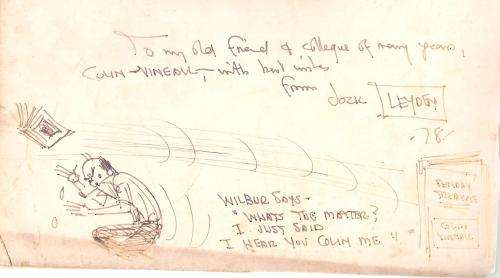 To my old friend & colleque of many years,
COLIN VINEALL, with best wishes
from
Jock LEYDEN
.78.
WILBUR SAYS -
"WHATS THE MATTER?
I JUST SAID
I HEAR YOU COLIN ME"!!
SUNDAY
TRIBUNE
COLIN
VINEALL